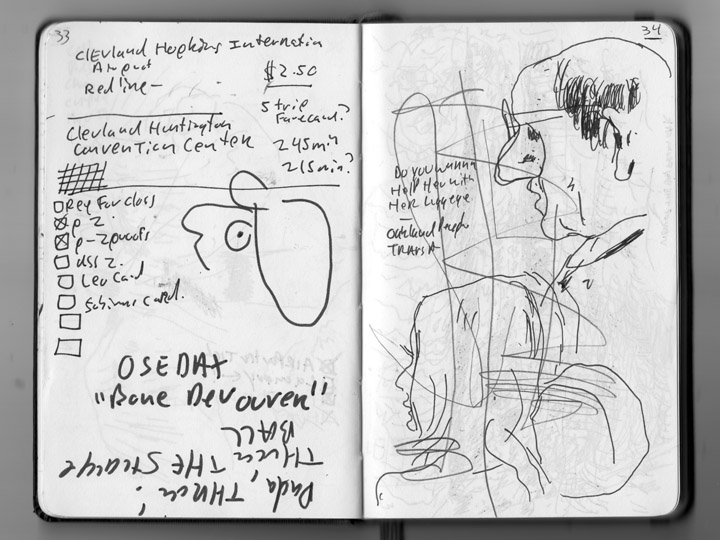 33
CLEVLAND HOPKINS INTERNATIN
AIRPORT
$2.50
REDLINE-
5 trip
Farecard?
Clevland Huntington
Convention Center
245min
215min?
Reg For class
P 2.
P-2proofs
USS 2.
Leo Card
OSEDAX
"Bone Devourer"
Dada, THROW!
THROW THE
BALL
34
Do you wanna
Help Her with
Her Luggege
Oakland